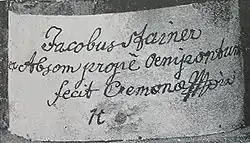 Jacobus Stainer
Absom propè Oenipontum
fecit Cremona